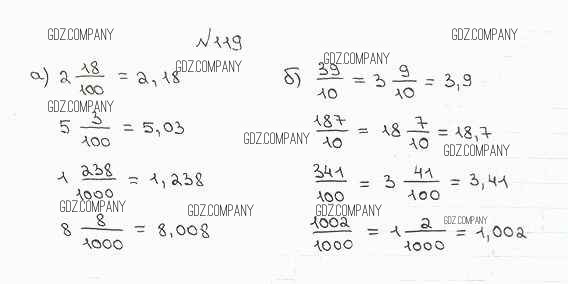 GDZ.COMPANY GDZ.COMPANY
№119
а) 2 18/100 = 2,18 GDZ.COMPANY
б) 39/10 = 3 9/10 = 3,9 GDZ.COMPANY
GDZ.COMPANY
5 3/100 = 5,03
187/10 = 18 7/10 = 18,7 GDZ.COMPANY
GDZ.COMPANY
1 238/1000 = 1,238
341/100 = 3 41/100 = 3,41
GDZ.COMPANY GDZ.COMPANY GDZ.COMPANY GDZ.COMPANY
8 8/1000 = 8,008
1002/1000 = 1 2/1000 = 1,002